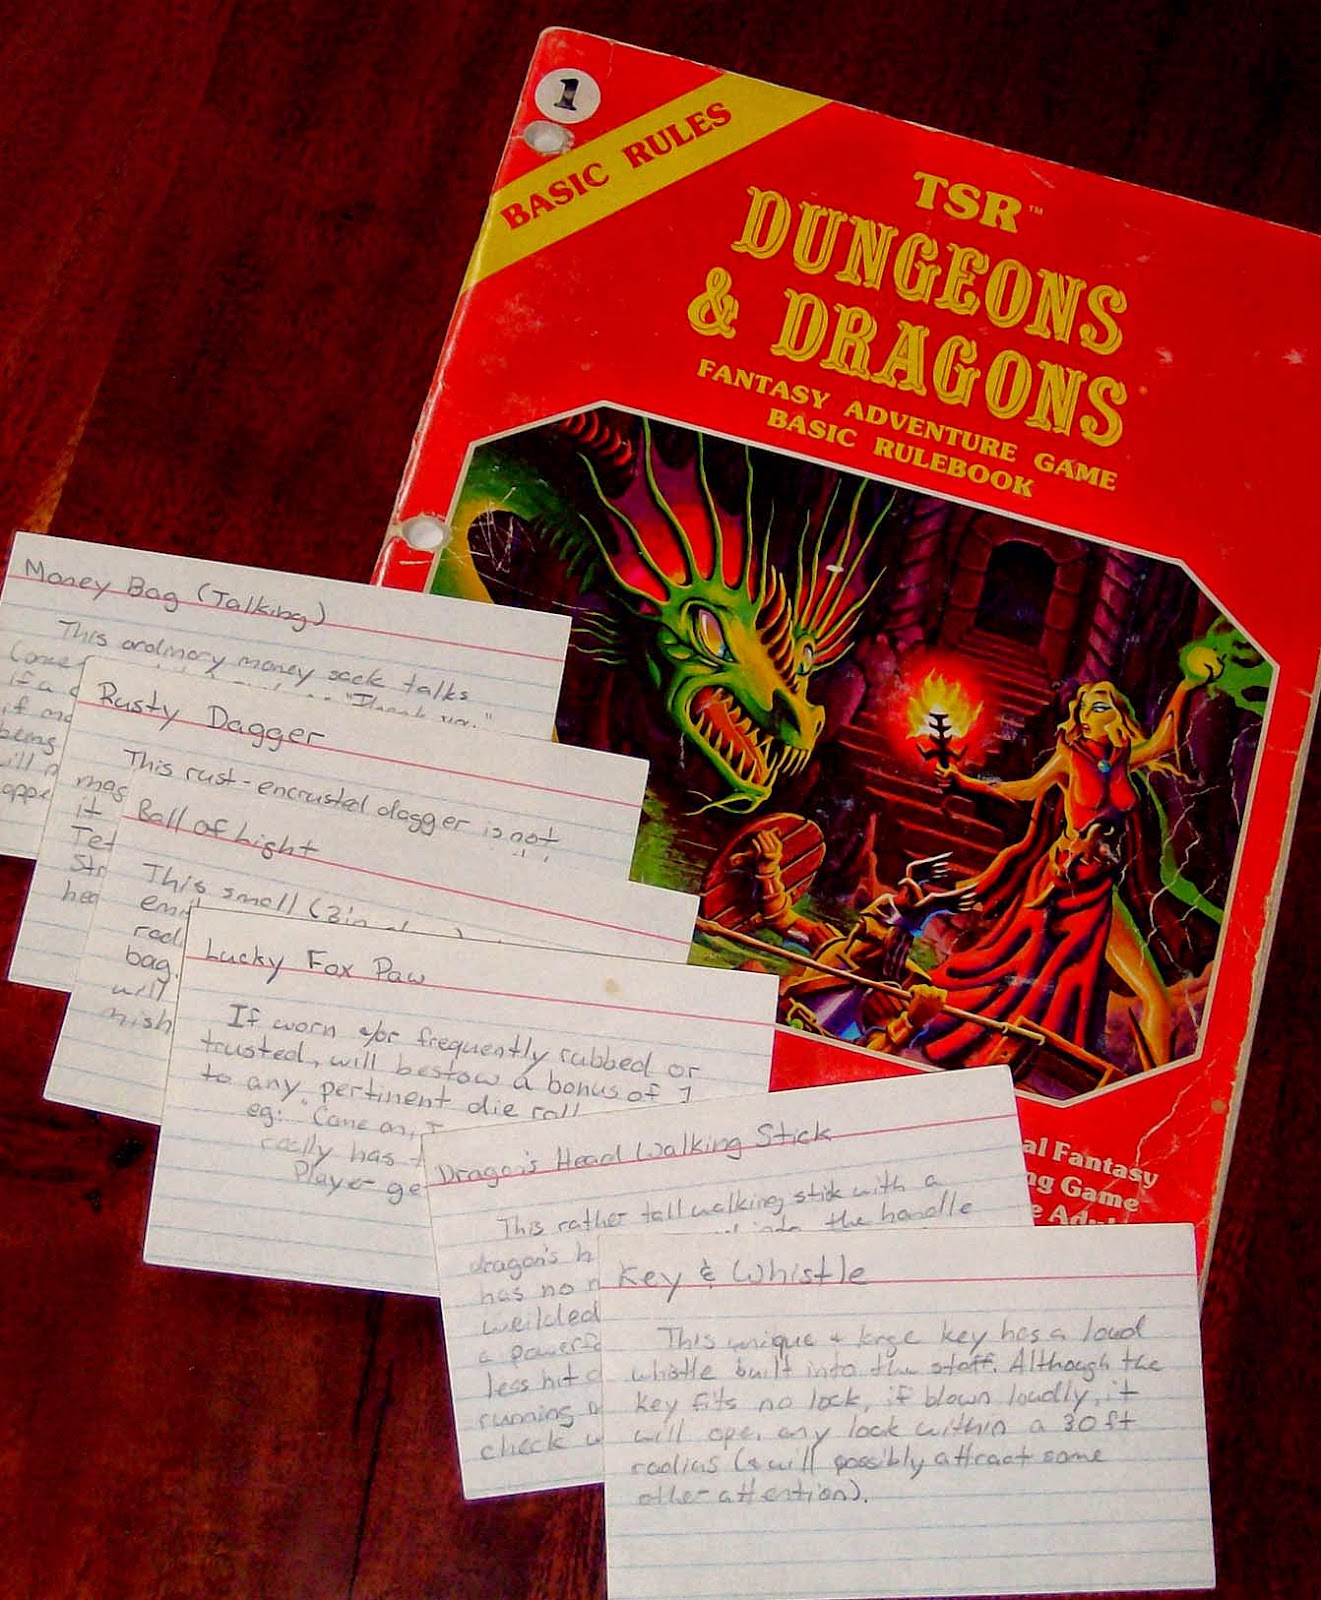 1
BASIC RULES
TSR™
DUNGEONS
& DRAGONS®
FANTASY ADVENTURE GAME
BASIC RULEBOOK
al Fantasy
ng Game
e Adul
Money Bag (Talking)
This ordinary money sack talks
if a
being
Rusty Dagger
This rust-encrusted dagger is not
mag
it
Te
Str
hea
Ball of Light
This small (3 in
emi
radi
bag.
will
mish
Lucky Fox Paw
If worn &/or frequently rubbed or
trusted, will bestow a bonus of 1
to any pertinent die roll
eg: "Come on,
really has
Player ge
Dragon's Head Walking Stick
This rather tall walking stick with a
dragon's h into the handle
has no
weilded
a powerf
less hit
running
check w
Key & Whistle
This unique & large key has a loud
whistle built into the staff. Although the
key fits no lock, if blown loudly, it
will open any lock within a 30ft
radius (& will possibly attract some
other attention).